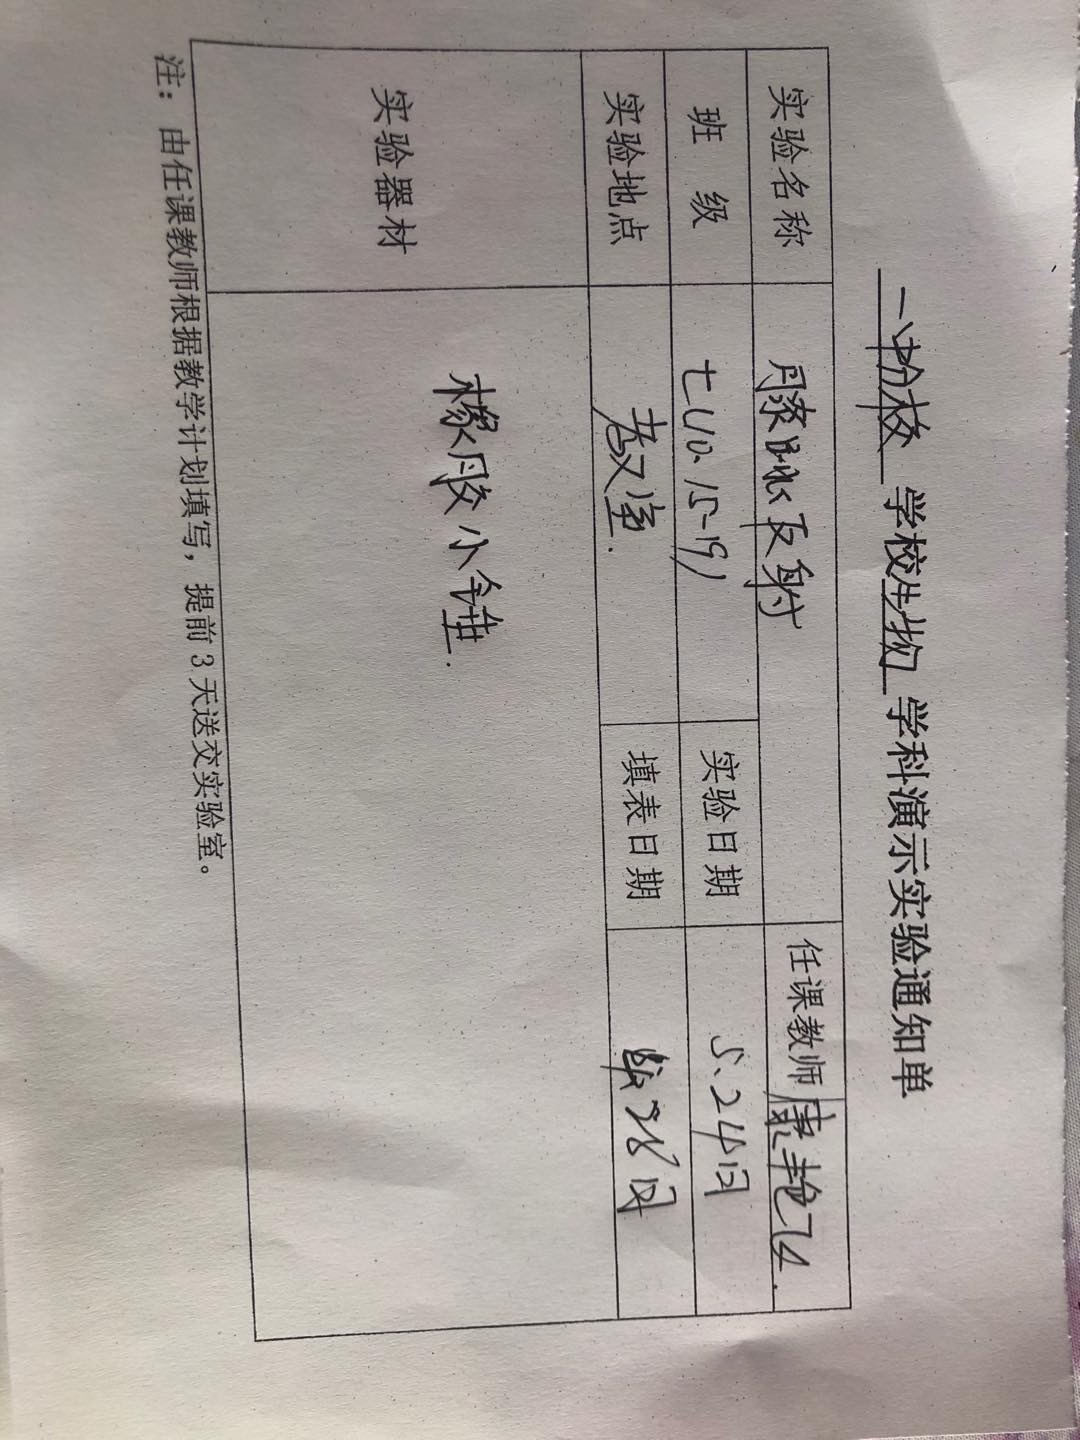 一中分校 学校生物 学科演示实验通知单
实验名称 膝跳反射 任课教师 康艳
班 级 七(10.15-19) 实验日期 5.24日
实验地点 教室. 填表日期 28日
实验器材 橡胶小锤.
注：由任课教师根据教学计划填写，提前3天送交实验室。